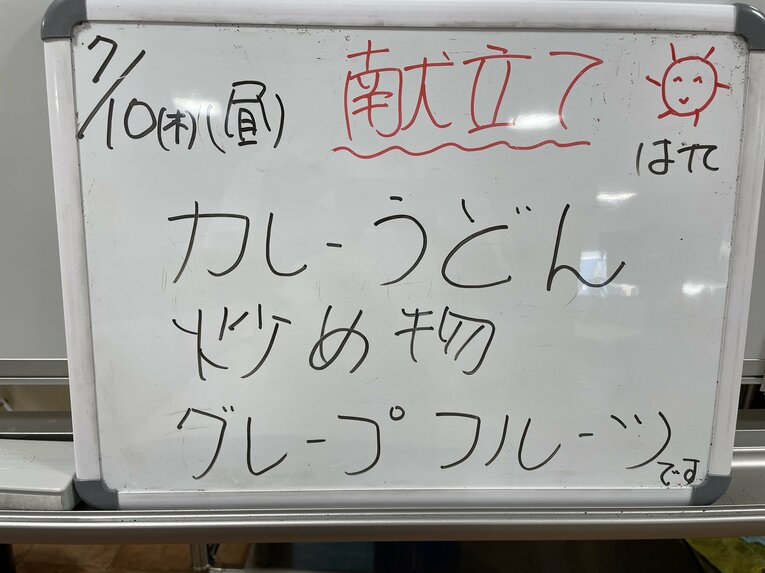 7/10(木)(昼) 献立て
はれ
カレーうどん
炒め物
グレープフルーツ
です